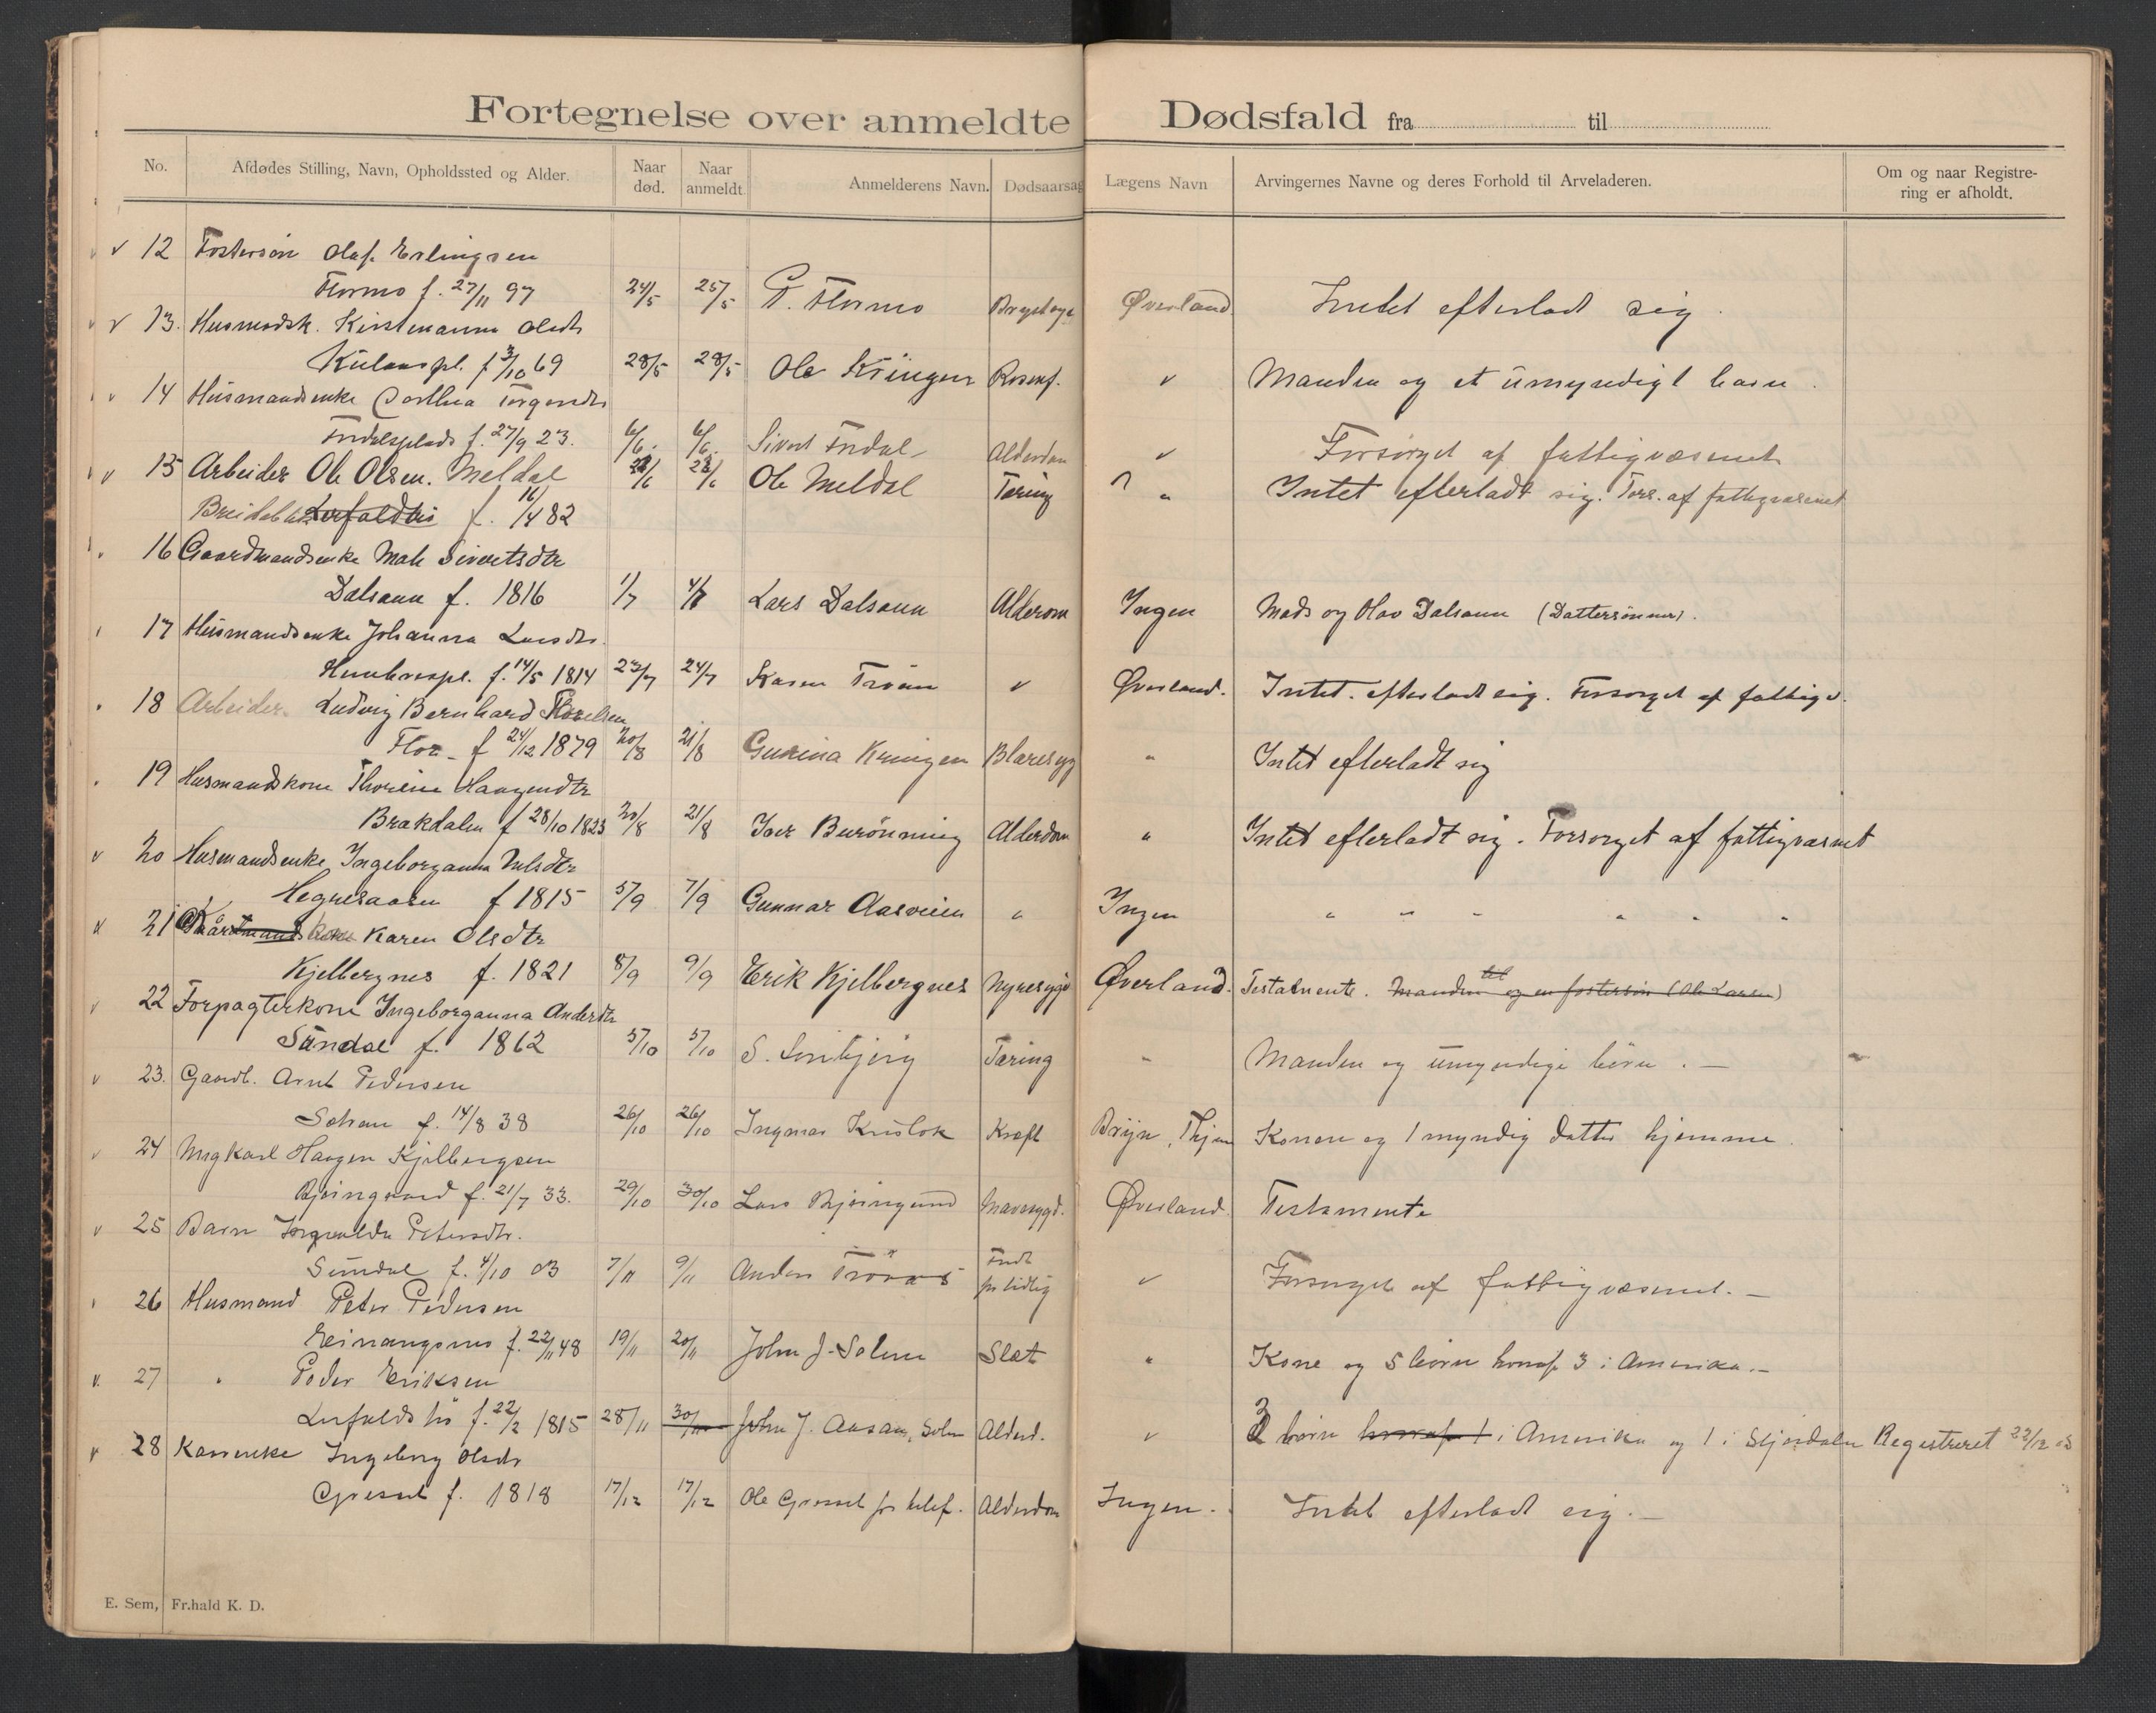 Fortegnelse over anmeldte Dødsfald fra til
No. Afdødes Stilling, Navn, Opholdssted og Alder. Naar død. Naar anmeldt Anmelderens Navn. Dødsaarsag Lægens Navn Arvingernes Navne og deres Forhold til Arveladeren. Om og naar Registrering er afholdt.
v 12 Fostersøn Olaf Erlingsen
Flormo f. 27/11 97 24/5 25/5 P. Flormo Øverland Intet efterladt sig.
v 13. Husmodsk. Olsdtr
f 3/10 69 28/5 28/5 Ole Kringen v Manden og et umyndigt barn.
v 14 Husmandsenke
f. 27/9 23. 6/6. 6/6. Sivert Alderdom v Forsørget af fattigvæsenet
v 15 Arbeider Ole Olsen. Meldal Ole Meldal Tæring " Intet efterladt sig. Fors. af fattigvæsenet
f. 16/4 82
16 Gaardmandsenke Mali Sivertsdtr
Dalsaun f. 1816 1/7 4/7 Lars Dalsaun Alderdom Ingen Mads og Olav Dalsaun (Dattersønner).
17 Husmandsenke Johanna Larsdtr.
f. 14/5 1814 23/7 24/7 Karen Trøen v Øverland. Intet efterladt sig. Forsørget af fattigv.
18 Arbeider Ludvig Bernhard
Flor f 24/12 1879 20/8 21/8 Gurina Kringen Blæresyg " Intet efterladt sig
19 Husmandskone Haagensdtr
Brækdalen f 28/10 1823 20/8 21/8 Iver Burønning Alderdom " Intet efterladt sig. Forsørget af fattigvæsnet
v 20 Husmandsenke Ingeborganna Nilsdtr
Hegnesaasen f 1815 5/9 7/9 Gunnar Aasveien " Ingen " " " " " "
v 21 Karen Olsdtr
Kjelbergnes f. 1821 8/9 9/9 Erik Kjelbergnes Nyresygd Øverland. Testamente. Manden og en fostersøn (Ole Larsen)
v 22 Forpagterkone Ingeborganna Andersdtr
f. 1862 5/10 5/10 Tæring " Manden og umyndige børn. —
v 23. Gaardb. Arnt Pedersen
f. 14/8 38 26/10 26/10 Ingmar Kræft Konen og 1 myndig datter hjemme.
v 24 Ungkarl Haagen Kjelbergsen
Bjøringaard f. 21/7 33. 29/10 30/10 Lars Mavesygd. Øverland. Testamente
v 25 Barn Petersdtr.
f. 4/10 03 7/11 9/11 Anders Født for tidlig v Forsørget af fattigvæsenet. —
26 Husmand Peter Pedersen
Einangsmo f. 22/11 48 19/11 20/11 John J. Solem Slæt " Kone og 5 børn hvoraf 3 i Amerika. —
v. 27 " Peder Eriksen
f. 22/2 1815 28/11 30/11 John J. Aasan, Solem Alderd. v 3 børn hvoraf 1 i Amerika og 1 i Stjørdalen Registreret 22/12 03
v 28 Kaarenke Ingeborg Olsdtr
Græsset f. 1818 17/12 17/12 Ole Græsset pr telef. Alderdom Ingen. Intet efterladt sig. —
E. Sem, Fr.hald K. D.